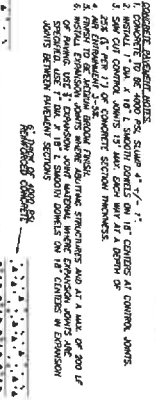 CONCRETE PAVEMENT NOTES:
1. CONCRETE TO BE 4000 PSI, SLUMP 4" +/- 1".
2. INSTALL DIA. X 18" L SMOOTH DOWELS ON 18" CENTERS AT CONTROL JOINTS.
3. SAW CUT CONTROL JOINTS 15' MAX. EACH WAY AT A DEPTH OF
25% (¼ PER 1") OF CONCRETE SECTION THICKNESS.
4. AIR ENTRAINMENT
5. FINISH TO BE MEDIUM BROOM FINISH.
6. INSTALL EXPANSION JOINTS WHERE ABUTTING STRUCTURES AND AT A MAX. OF 200 LF
OF PAVING. USE EXPANSION JOINT MATERIAL. WHERE EXPANSION JOINTS ARE
SPECIFIED, USE DIA. X 18" L SMOOTH DOWELS ON 18" CENTERS IN EXPANSION
JOINTS BETWEEN PAVEMENT SECTIONS
6" THICK OF 4000 PSI
REINFORCED CONCRETE